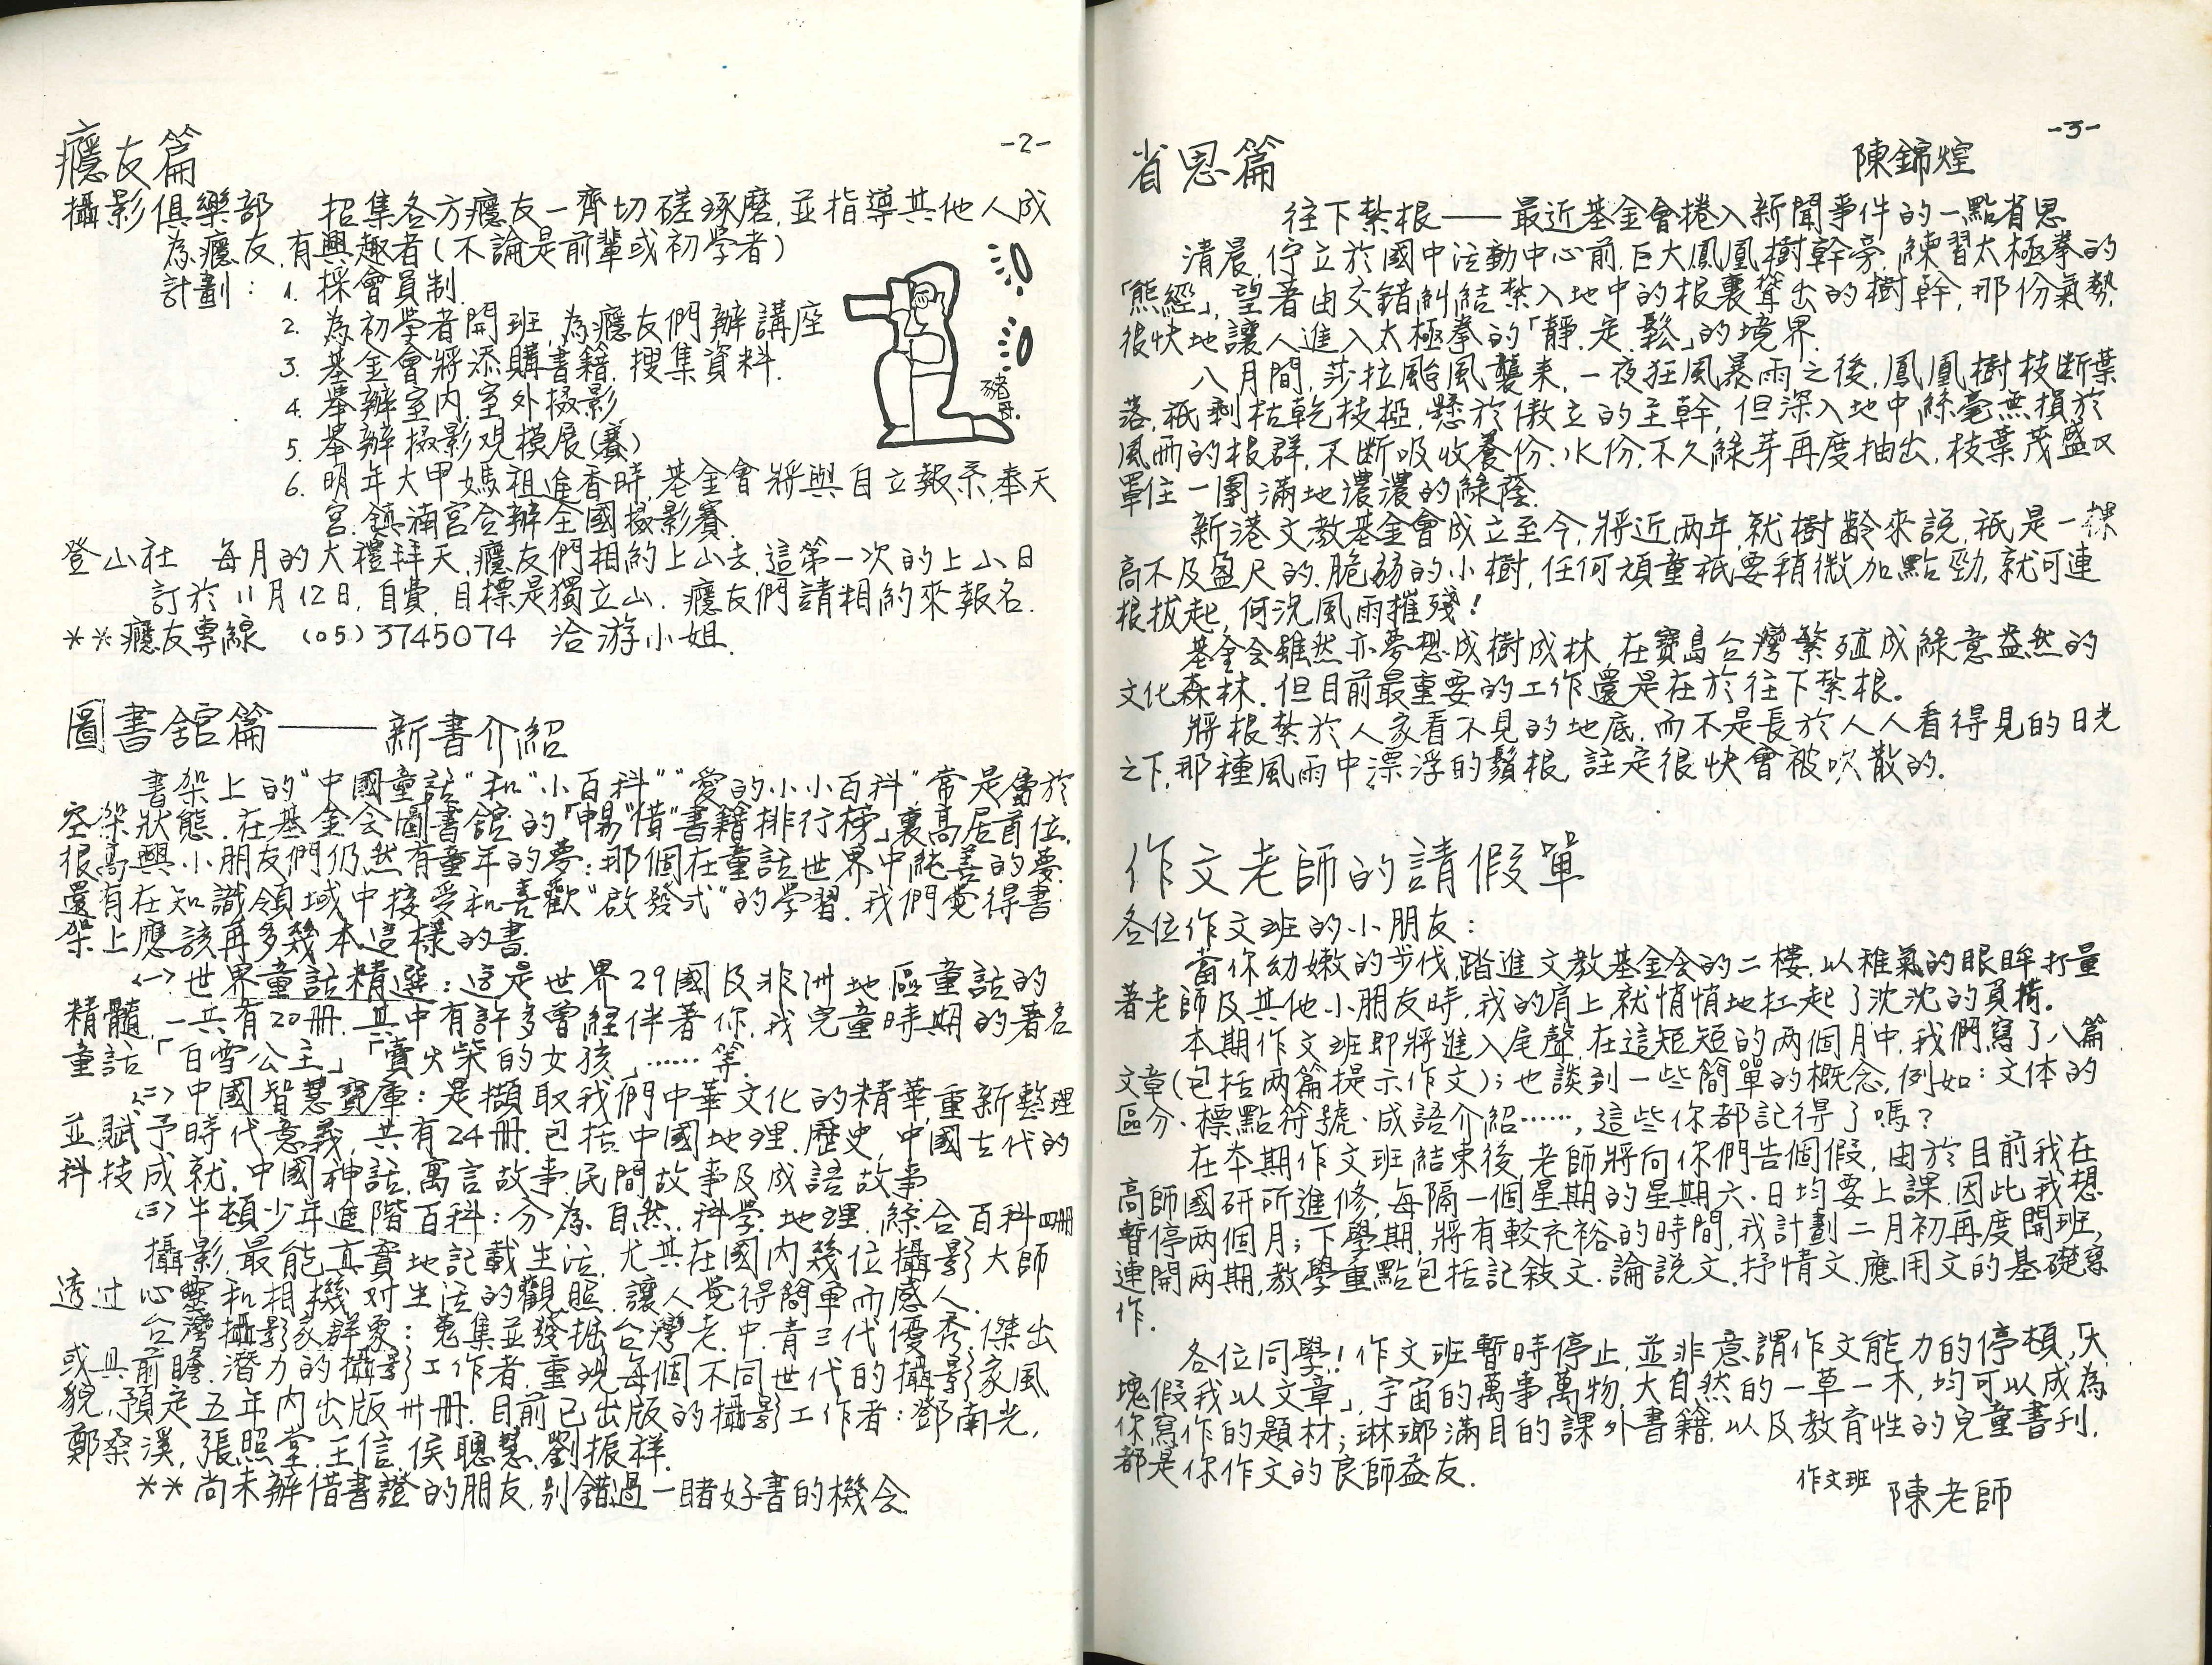 -2-
癮友篇
攝影俱樂部 招集各方癮友一齊切磋琢磨,並指導其他人成
為癮友,有興趣者(不論是前輩或初學者)
計劃:1. 採會員制.
2. 為初學者開班,為癮友們辦講座
3. 基金會將添購書籍,搜集資料.
4. 舉辦室內.室外摄影
5. 舉辦摄影观模展(賽)
6. 明年大甲媽祖進香時,基金會將與自立報系.奉天
宮.鎮湳宮合辦全國摄影賽.
豬哥.
登山社 每月的大禮拜天.癮友們相約上山去.這第一次的上山日
訂於11月12日,自費.目標是獨立山.癮友們請相約來報名.
**癮友專線 (05)3745074 洽游小姐.
圖書舘篇——新書介紹
書架上的"中國童話"和"小百科""愛的小小百科"常是屬於
空架狀態.在基金会圖書舘的「暢"借"書籍排行榜」裏高居首位.
很高興小朋友們仍然有童年的夢:那個在童話世界中純善的夢.
還有在知識領域中接受和喜歡"啟發式"的學習.我們覺得書
架上應該再多幾本這樣的書.
<一>世界童話精選:這是世界29國及非洲地區童話的
精髓,一共有20冊.其中有許多曾經伴著你.我兒童時期的著名
童話「白雪公主」「賣火柴的女孩」……等.
<二>中國智慧寶庫:是擷取我們中華文化的精華,重新整理
並賦予時代意義,共有24冊.包括.中國地理.歷史,中國古代的
科技成就.中國神話.寓言故事.民間故事及成語故事.
<三>牛頓少年進階百科:分為自然.科學.地理.綜合百科四冊
攝影,最能真實地記載生活.尤其在國內幾位攝影大師
透过心靈和相機对生活的觀照.讓人覺得簡單而感人.
台灣攝影家群象:蒐集並發掘台灣老.中.青三代優秀.傑出
或具前瞻.潛力的攝影工作者.重現每個不同世代的攝影家風
貌,預定五年內出版卅冊.目前已出版的攝影工作者:鄧南光,
鄭桑溪,張照堂.王信.侯聰慧.劉振祥.
**尚未辦借書證的朋友,别錯過一睹好書的機会.
-3-
省思篇 陳錦煌
往下紮根——最近基金會捲入新聞事件的一點省思
清晨,佇立於國中活動中心前.巨大鳳凰樹幹旁.練習太極拳的
「熊經」,望著由交錯糾結紮入地中的根裏聳出的樹幹,那份氣勢,
很快地讓人進入太極拳的「靜.定.鬆」的境界.
八月間,莎拉颱風襲来,一夜狂風暴雨之後,鳳凰樹枝断葉
落,祇剩枯乾枝椏.懸於傲立的主幹,但深入地中絲毫無損於
風雨的根群,不斷吸收養份.水份.不久綠芽再度抽出,枝葉茂盛又
罩住一團滿地濃濃的綠蔭.
新港文教基金會成立至今,將近兩年,就樹齡來說.祇是一棵
高不及盈尺的.脆弱的小樹,任何頑童祇要稍微加點勁,就可連
根拔起,何況風雨摧殘!
基金会雖然亦夢想成樹成林,在寶島台灣繁殖成綠意盎然的
文化森林.但目前最重要的工作還是在於往下紮根。
將根紮於人家看不見的地底.而不是長於人人看得見的日光
之下,那種風雨中漂浮的鬚根,註定很快會被吹散的.
作文老師的請假單
各位作文班的小朋友:
當你幼嫩的步伐,踏進文教基金会的二樓.以稚氣的眼眸打量
著老師及其他小朋友時,我的肩上就悄悄地扛起了沈沈的負荷。
本期作文班即將進入尾聲,在這短短的两個月中,我們寫了八篇
文章(包括两篇提示作文);也談到一些簡單的概念,例如:文体的
區分.標點符號.成語介紹……,這些你都記得了嗎?
在本期作文班結束後,老師將向你們告個假,由於目前我在
高師國研所進修,每隔一個星期的星期六.日均要上課.因此我想
暫停两個月;下學期,將有較充裕的時間,我計劃二月初再度開班,
連開两期,教學重點包括記敘文.論説文.抒情文.應用文的基礎寫
作.
各位同學!作文班暫時停止,並非意謂作文能力的停頓,「大
塊假我以文章」,宇宙的萬事萬物,大自然的一草一木,均可以成為
你寫作的題材;琳瑯滿目的課外書籍.以及教育性的兒童書刊.
都是你作文的良師益友.
作文班 陳老師